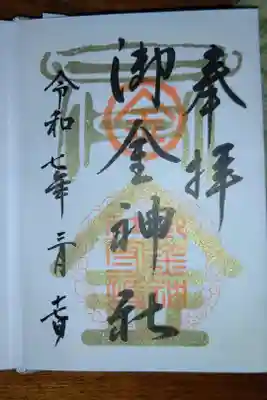 奉拝
御金神社
令和七年 三月
金